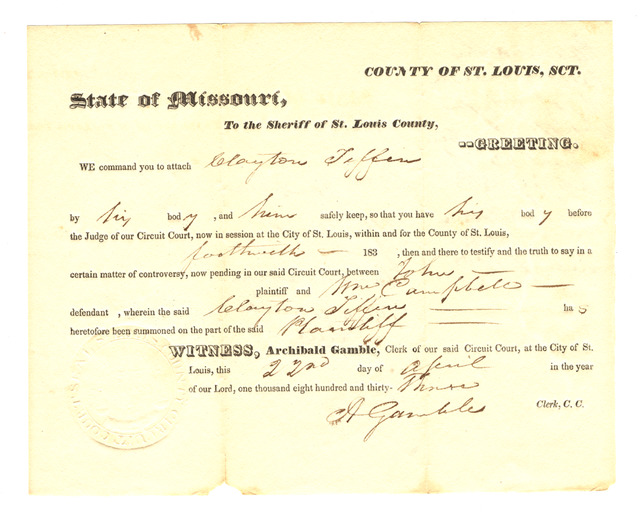 COUNTY OF ST. LOUIS, SCT.
State of Missouri,
To the Sheriff of St. Louis County,
--GREETING.
WE command you to attach Clayton Tiffin
by his body , and him safely keep, so that you have his body before
the Judge of our Circuit Court, now in session at the City of St. Louis, within and for the County of St. Louis,
forthwith — 183 , then and there to testify and the truth to say in a
certain matter of controversy, now pending in our said Circuit Court, between John —
plaintiff and Wm Campbell —
defendant , wherein the said Clayton Tiffin — has
heretofore been summoned on the part of the said Plaintiff —
WITNESS, Archibald Gamble, Clerk of our said Circuit Court, at the City of St.
Louis, this 22nd day of April in the year
of our Lord, one thousand eight hundred and thirty- Three
A Gamble Clerk, C. C.